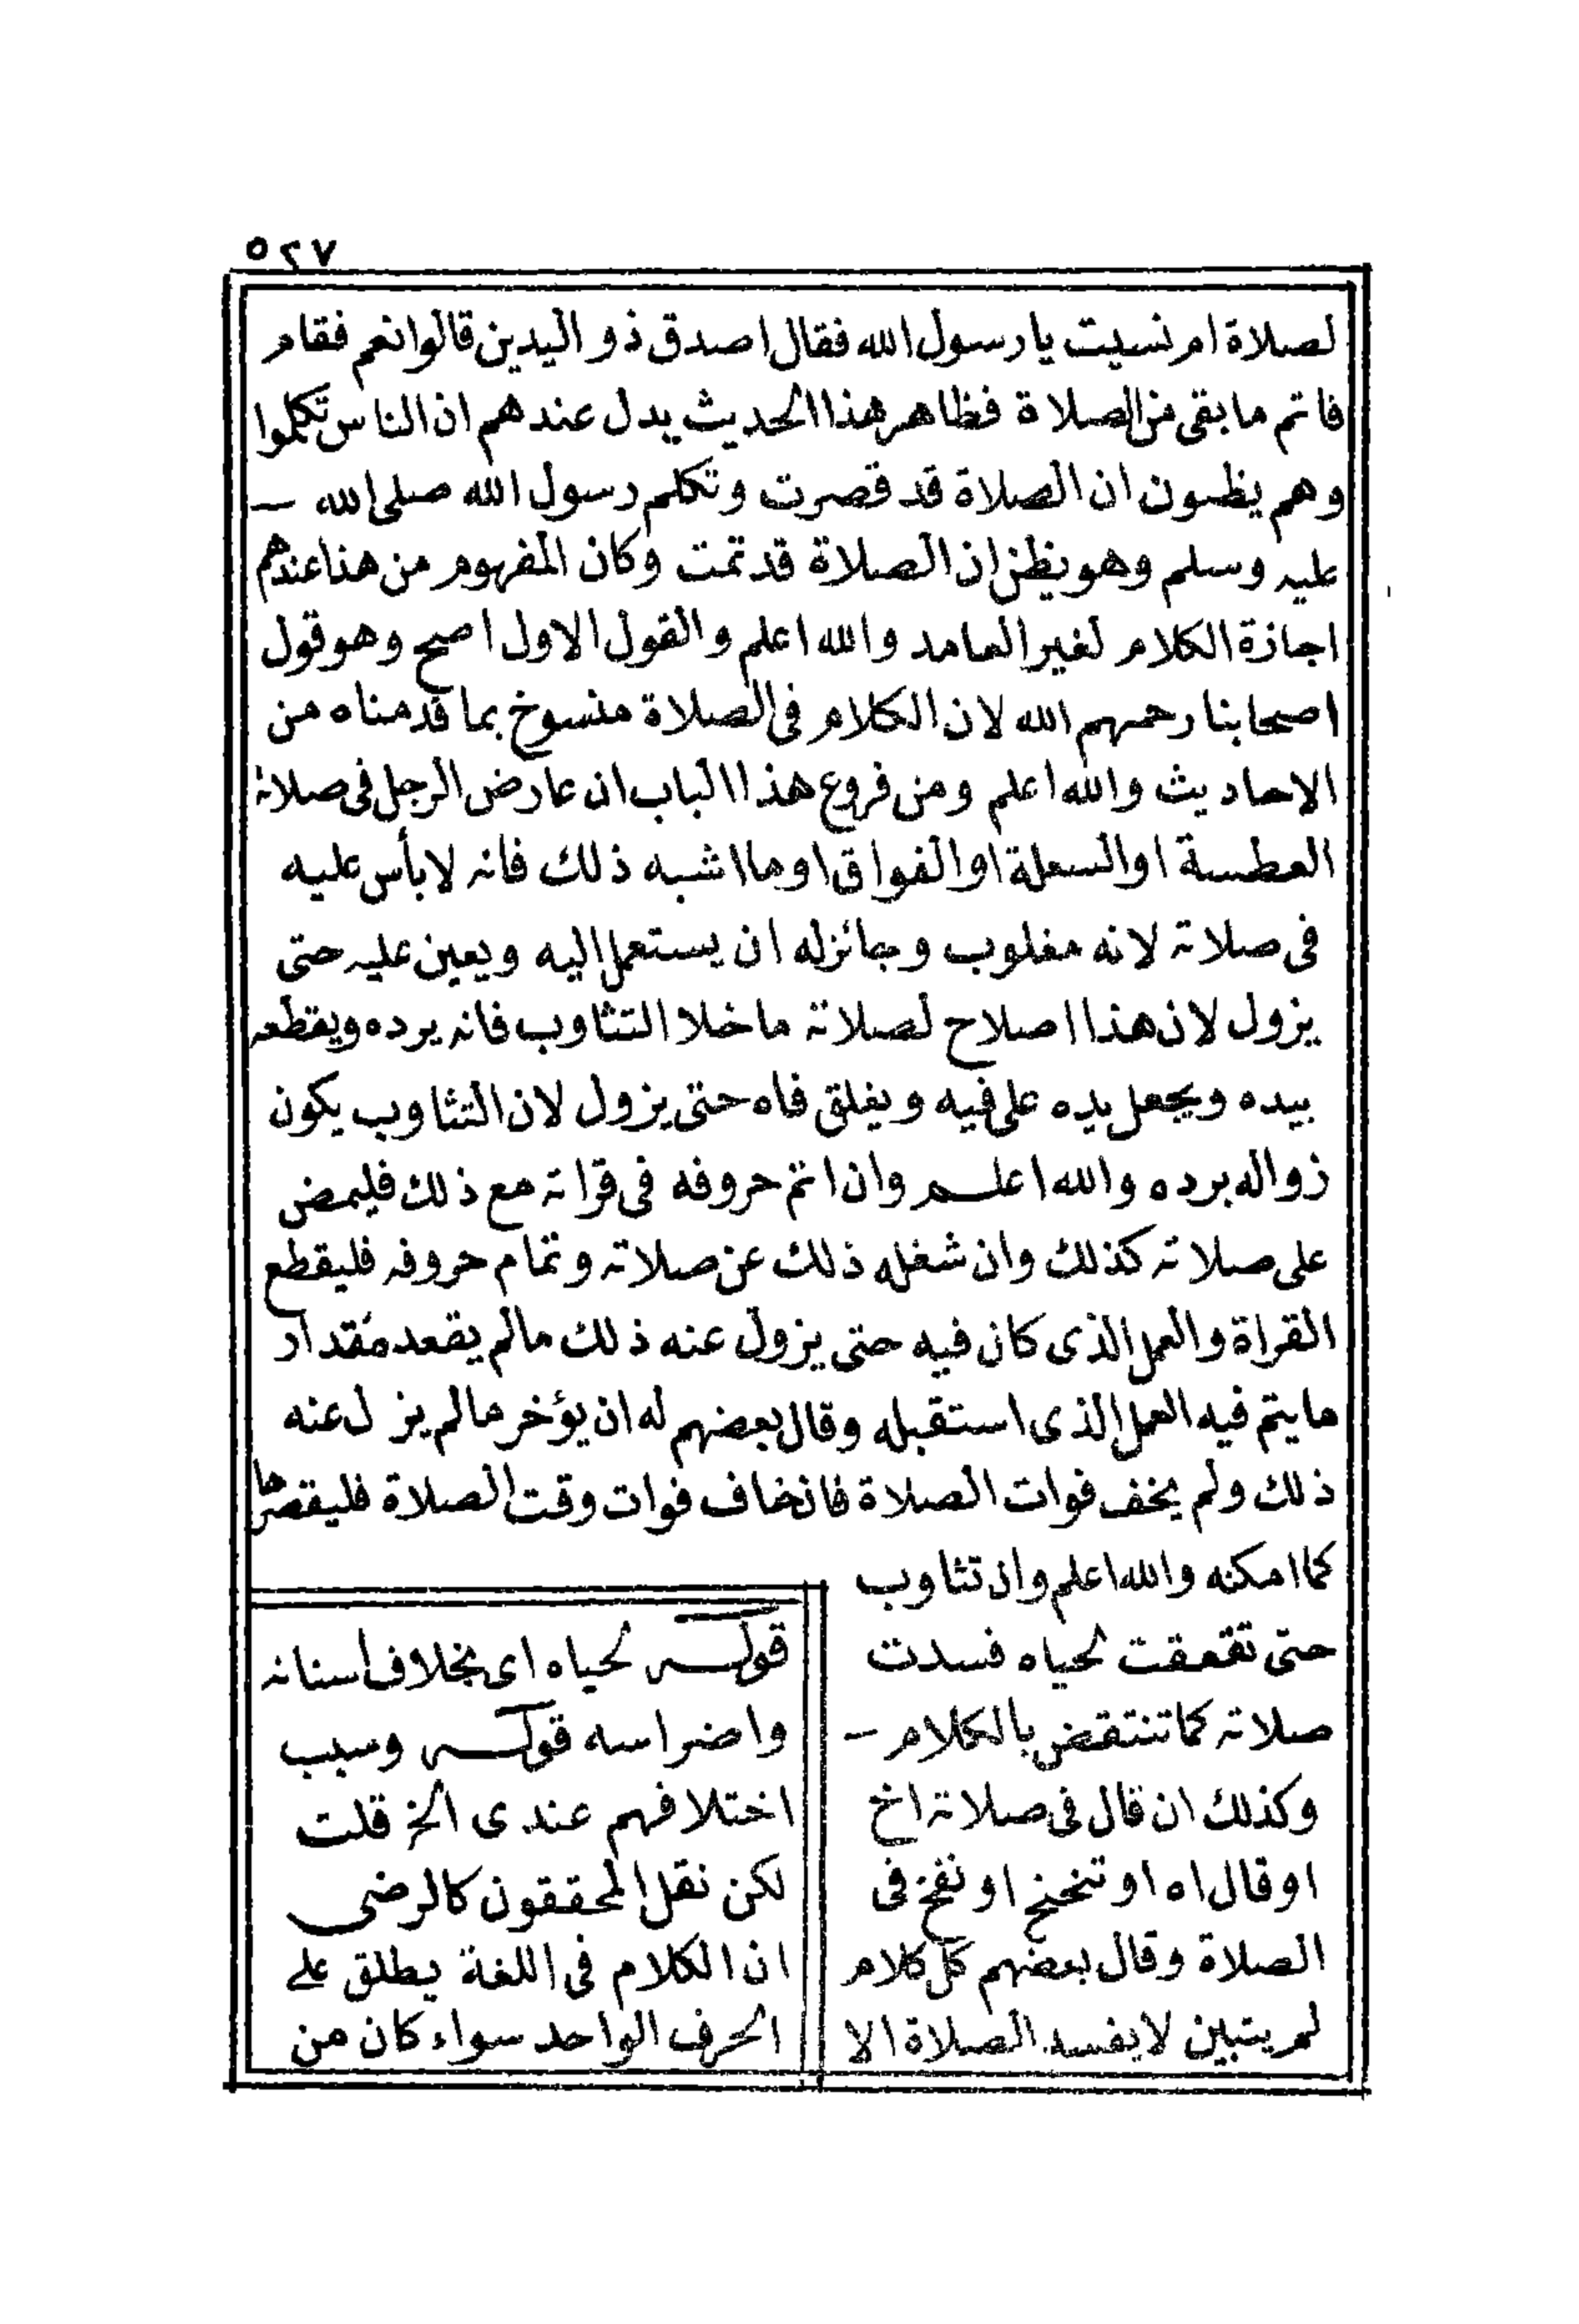 ٥٢٧
لصلاة ام نسيت يا رسول الله فقال اصدق ذو اليدين قالوا نعم فقام
فاتم ما بقى من الصلاة فظاهر هذا الحديث يدل عندهم ان الناس تكلموا
وهم يظنون ان الصلاة قد قصرت وتكلم رسول الله صلى الله –
عليه وسلم وهو يظن ان الصلاة قد تمت وكان المفهوم من هذا عندهم
اجازة الكلام لغير العامد والله اعلم والقول الاول اصح وهو قول
اصحابنا رحمهم الله لان الكلام فى الصلاة منسوخ بما قدمناه من
الاحاديث والله اعلم ومن فروع هذا الباب ان عارض الرجل فى صلاته
العطسة او السعلة او الفواق او ما اشبه ذلك فانه لا بأس عليه
فى صلاته لانه مغلوب وجائز له ان يستعمل اليه ويعين عليه حتى
يزول لان هذا اصلاح لصلاته ما خلا التثاوب فانه يرده ويقطعه
بيده ويجعل يده على فيه ويغلق فاه حتى يزول لان التثاوب يكون
زواله برده والله اعلم وان اتم حروفه فى قراته مع ذلك فليمض
على صلاته كذلك وان شغله ذلك عن صلاته وتمام حروفه فليقطع
القراة والعمل الذى كان فيه حتى يزول عنه ذلك ما لم يقعد مقدار
ما يتم فيه العمل الذى استقبله وقال بعضهم له ان يؤخر ما لم يزل عنه
ذلك ولم يخف فوات الصلاة فان خاف فوات وقت الصلاة فليقصرها
كما امكنه والله اعلم وان تثاوب
حتى تقعقت لحياه فسدت
صلاته كما تنتقض بالكلام –
وكذلك ان قال فى صلاته اخ
او قال اه او تنحنح او نفخ فى
الصلاة وقال بعضهم كل كلام
لم يتبين لا يفسد الصلاة الا
قوله لحياه اى بخلاف اسنانه
واضراسه قوله وسبب
اختلافهم عندى الخ قلت
لكن نقل المحققون كالرضى
ان الكلام فى اللغة يطلق على
الحرف الواحد سواء كان من